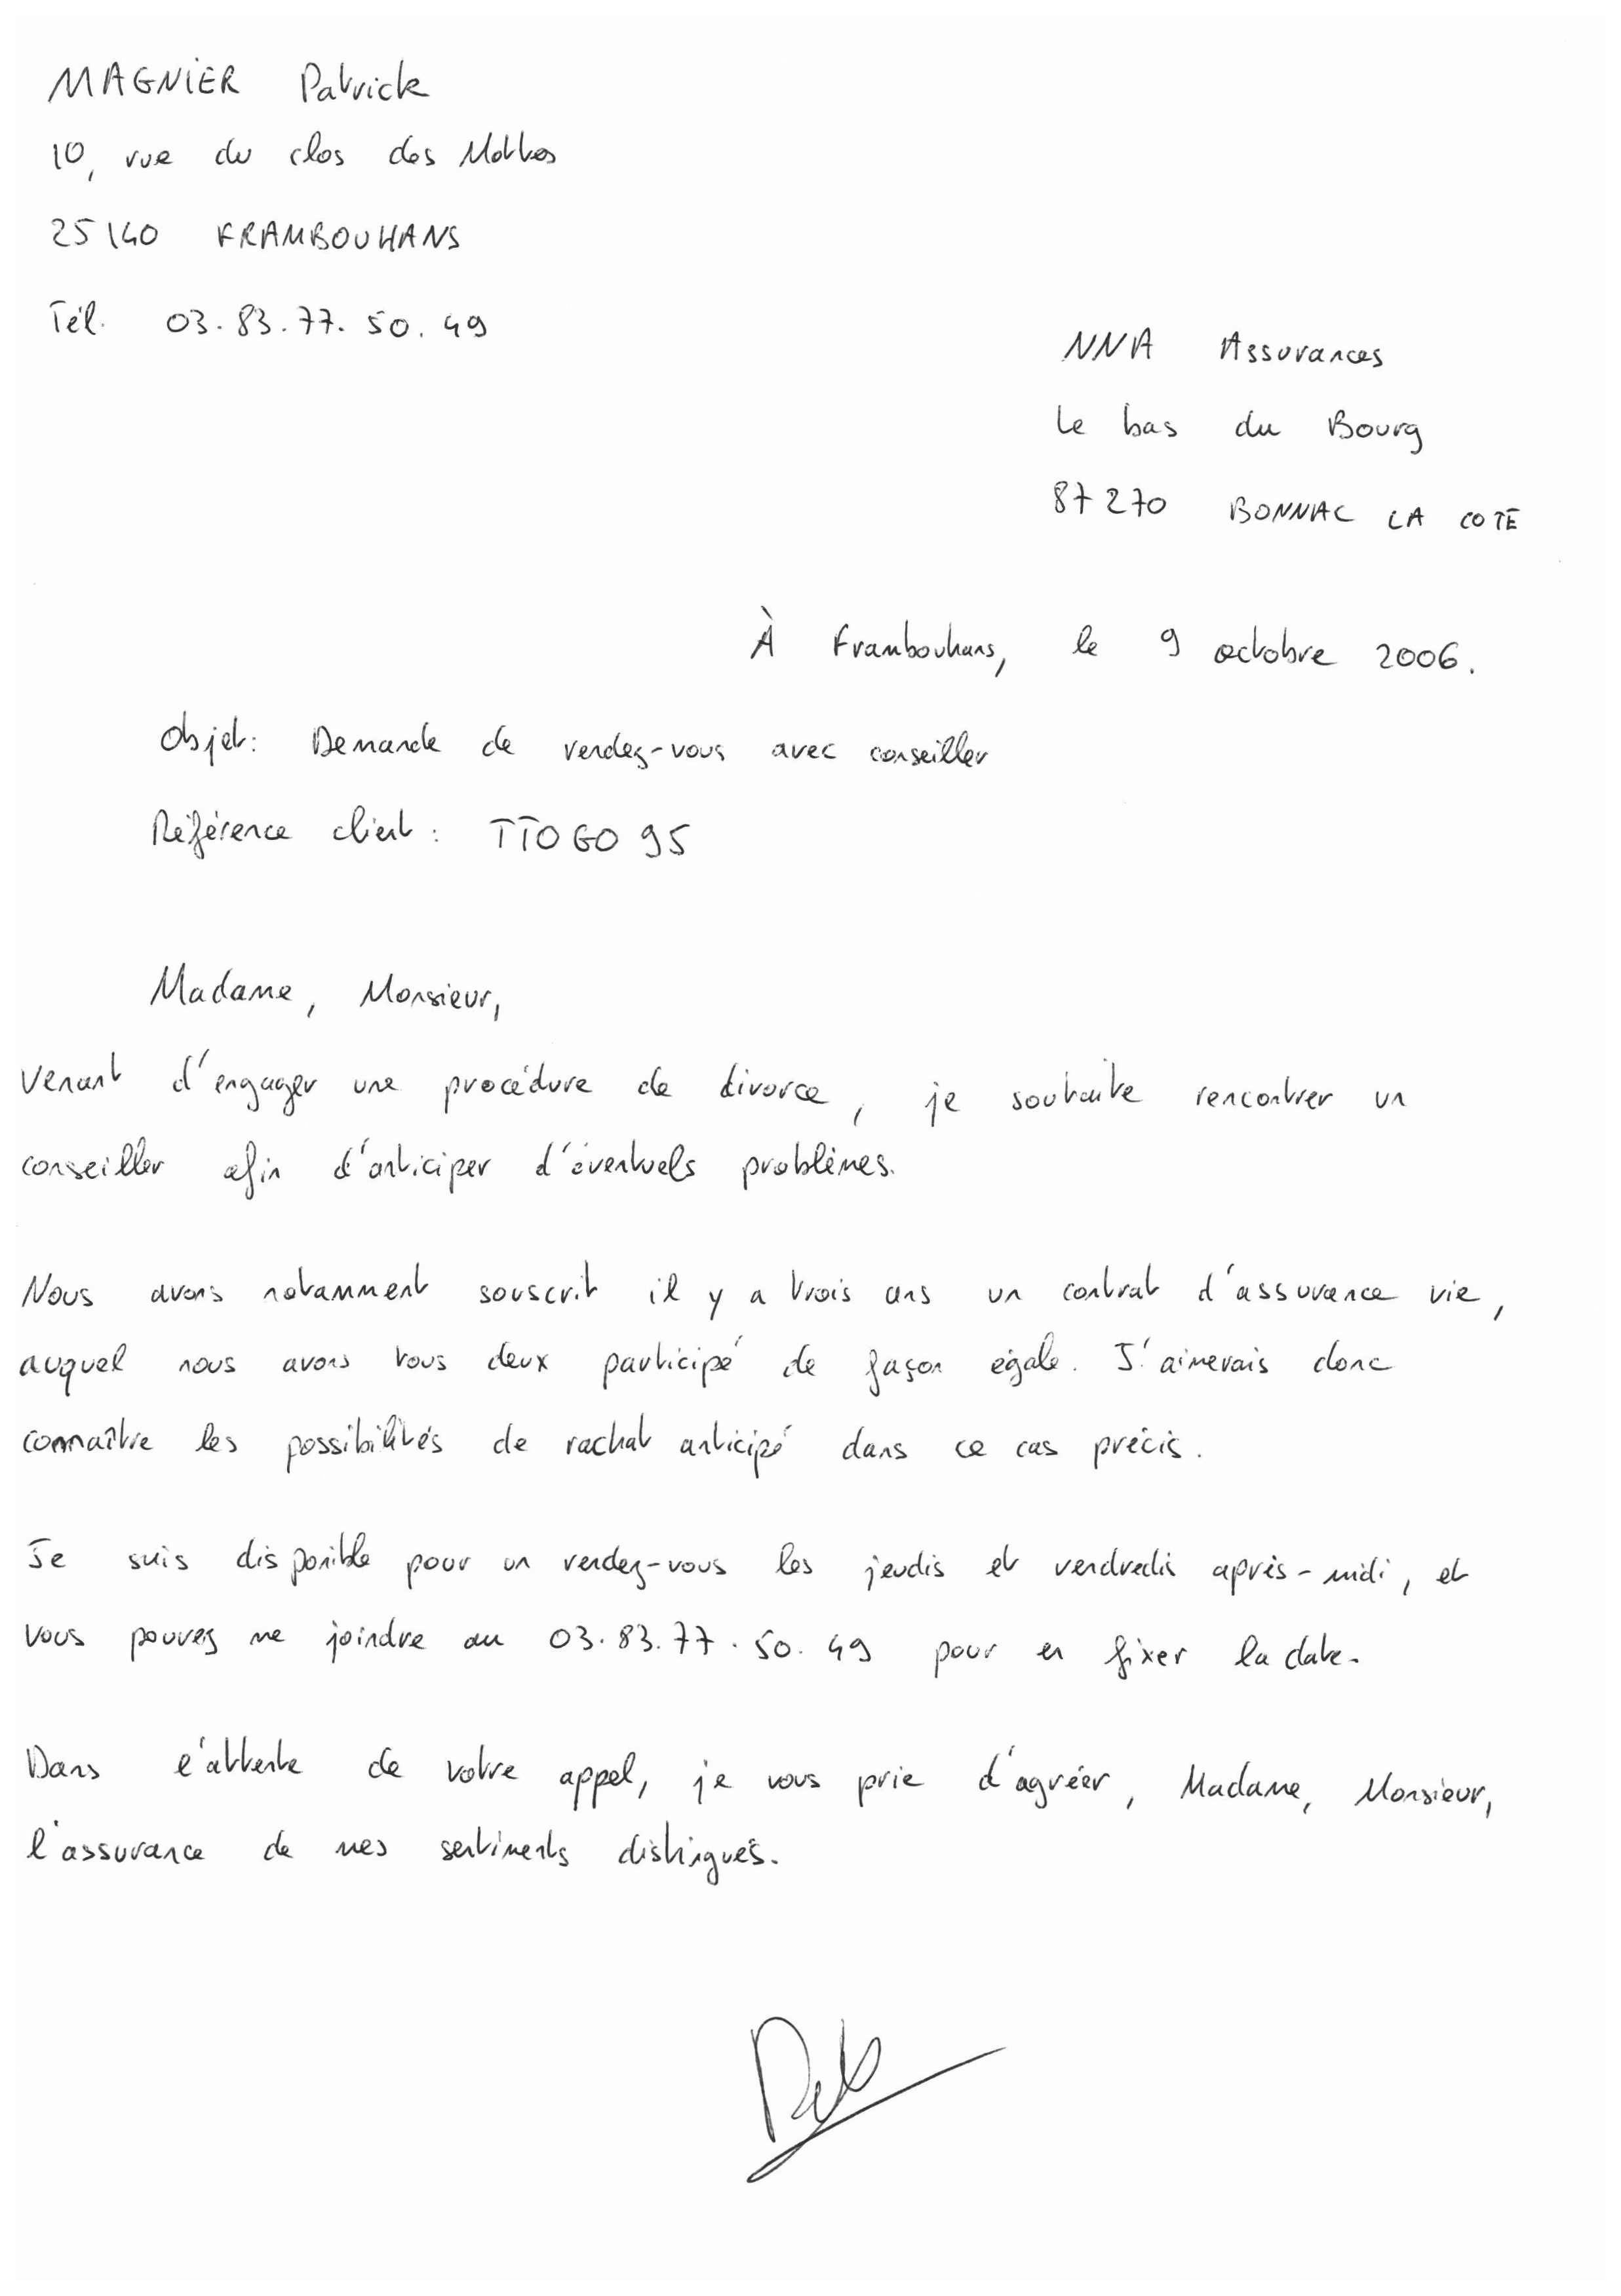 MAGNIER Patrick
10, rue du clos des Mottes
25140 FRAMBOUHANS
Tél. 03.83.77.50.49
NNA Assurances
Le bas du Bourg
87270 BONNAC LA COTE
À Frambouhans, le 9 octobre 2006.
Objet: Demande de rendez-vous avec conseiller
Référence client : TTOGO95
Madame, Monsieur,
Venant d'engager une procédure de divorce, je souhaite rencontrer un
conseiller afin d'anticiper d'éventuels problèmes.
Nous avons notamment souscrit il y a trois ans un contrat d'assurance vie,
auquel nous avons tous deux participé de façon égale. J'aimerais donc
connaître les possibilités de rachat anticipé dans ce cas précis.
Je suis disponible pour un rendez-vous les jeudis et vendredis après-midi, et
vous pouvez me joindre au 03.83.77.50.49 pour en fixer la date.
Dans l'attente de votre appel, je vous prie d'agréer, Madame, Monsieur,
l'assurance de mes sentiments distingués.